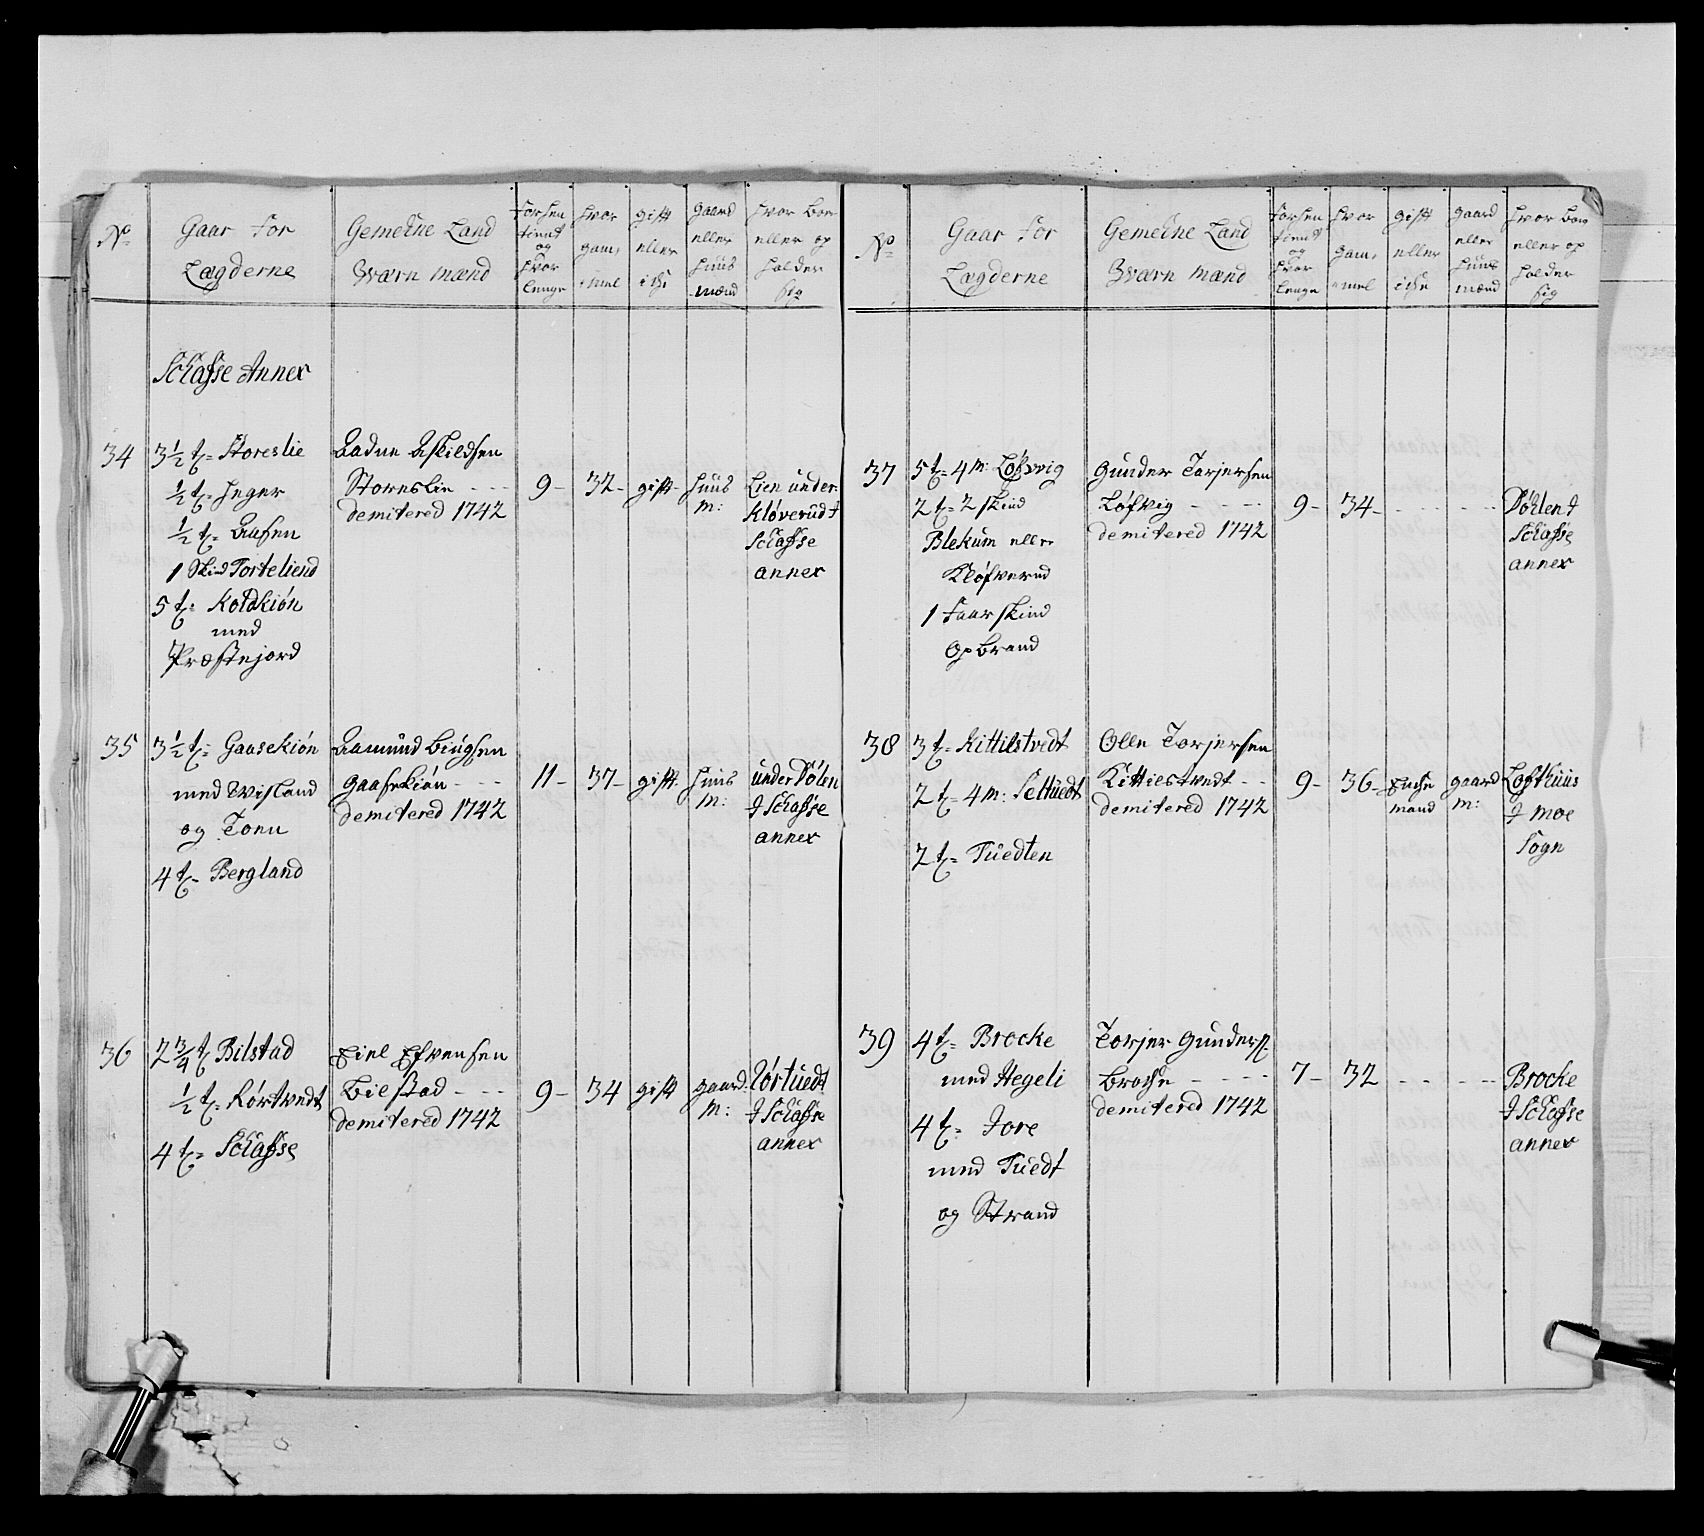 No
Gaar for
Lægderne
Gemeene Land
Værn mænd
forhen
tient
og
hvor
lenge
hvor
gam,
mel
gift
eller
iche
gaard
eller
huus
mænd
hvor boe
eller op
holder
sig
Schafse Annex
34
3 1/2 t= Storeslie
1/2 t= Heger
1/2 t= Aasen
1 Skind Torteliend
5 t= Koldkiön
med
Præstejord
Aadne Askildsen
Storeslie - - -
demitered 1742
9 -
32 -
gift -
huus
m:
Lien under
Kløverud J
Schafse
annex
35
3 1/2 t= Gaasekiön
med Wisland
og Tonn
4 t= Bergland
Aamund
Gaasekiön - - -
demitered 1742
11 -
37 -
gift -
huus
m:
under Dölen
J Schafse
annex
36
2 3/4 t Bilstad
1/2 t= Rörtvedt
4 t= Schafse
Eivensen
Bielstad - - -
demitered 1742
9 -
34
gift
gaard
m:
Rörtuedt
J Schafse
annex
No
Gaar for
Lægderne
Gemeene Land
Værn mænd
forhen
tient
og
hvor
lenge
hvor
gam,
mel
gift
eller
iche
gaard
eller
huus
mænd
hvor boe
eller op
holder
sig
37
5 t= 4 m: Løfvig
2 t= 2 skind
Blekum eller
Kløfverud
1 Faarskind
Opbrand
Gunder Torjersen
Løfvig - - - -
demitered 1742
9 -
34 - - - - - - -
Dölen J
Schafse
annex
38
3 t= Kittilstvedt
2 t= 4 m:
2 t= Tuedten
Olle Torjersen
Kittielstvedt - -
demitered 1742
9 -
36 -
Enche
mand
gaard
m:
Lofthuus
J Moe
Sogn
39
4 t= Brocke
med Hegeli
4 t= Jore
med Tuedt
og Strand
Torjer Gunders:
Broche - - - -
demitered 1742
7 -
32 - - - - -
Brocke
J Schafse
annex